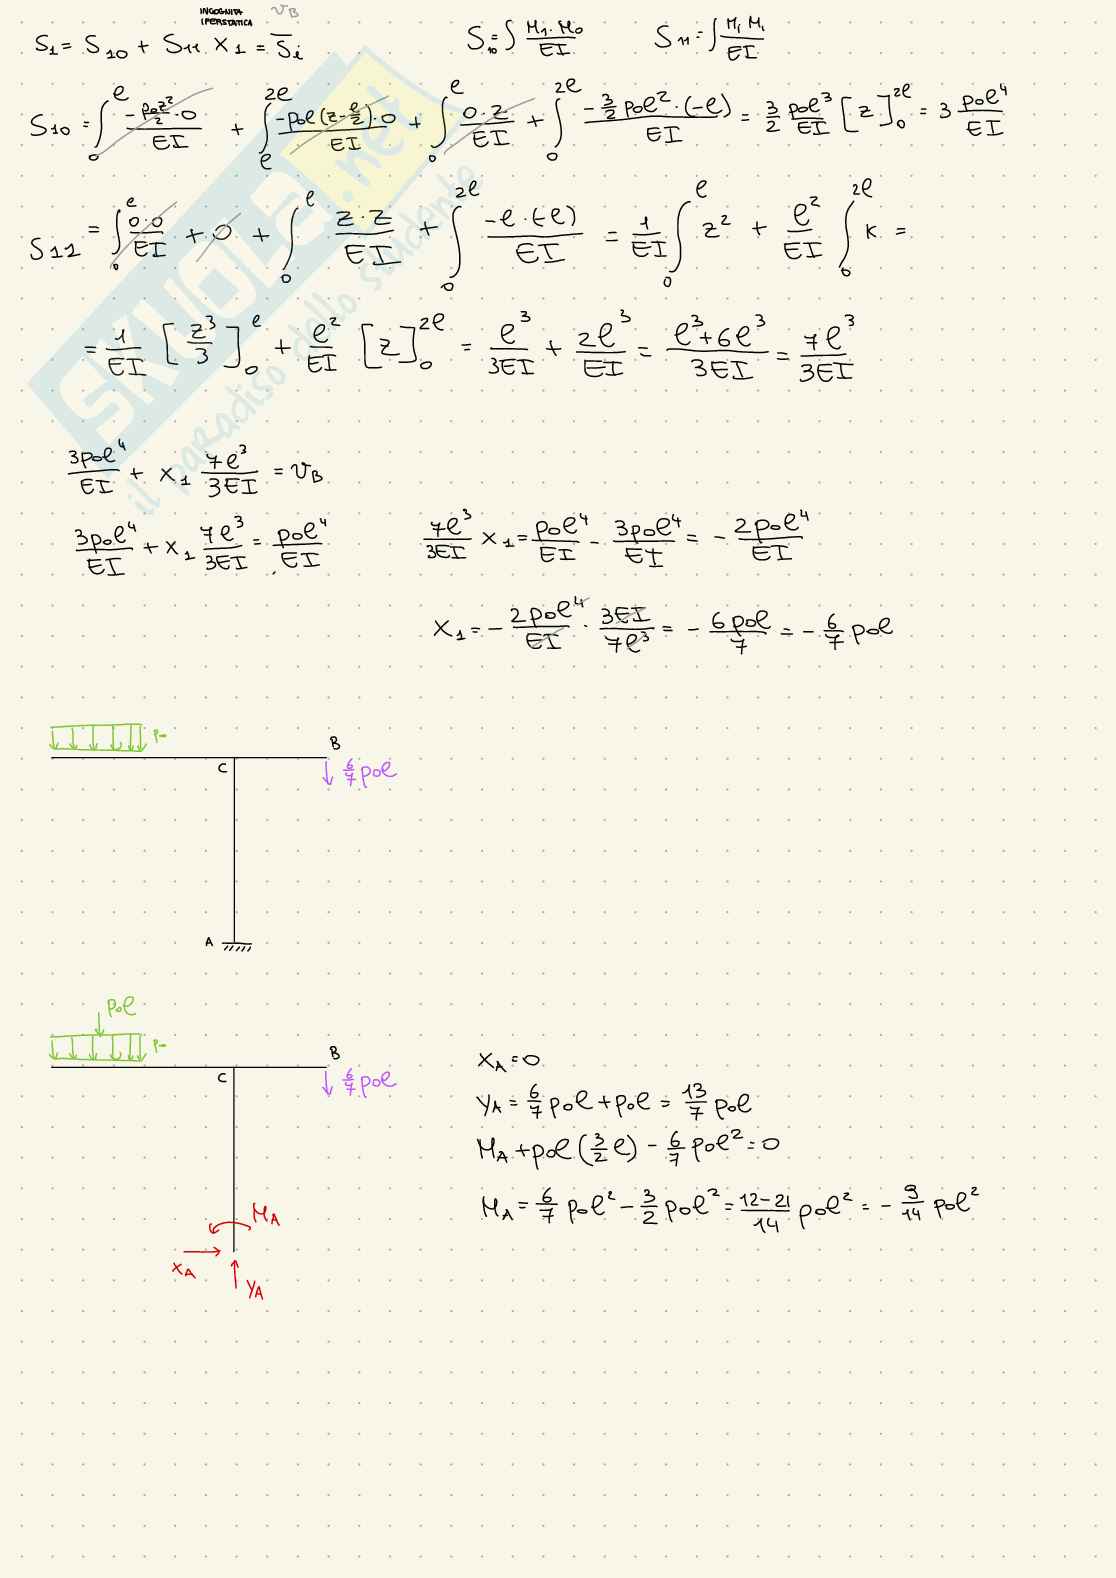 INCOGNITA IPERSTATICA
v_B
S_1 = S_10 + S_11 · X_1 = S̄_i
S_10 = ∫ M_1 · M_0 / EI
S_11 = ∫ M_1 M_1 / EI
S_10 = ∫_0^l (-p_0z²/2 · 0)/EI + ∫_l^2l (-p_0l(z-l/2) · 0)/EI + ∫_0^l (0·z)/EI + ∫_0^2l (-3/2 p_0l² · (-l))/EI = 3/2 p_0l³/EI [z]_0^2l = 3 p_0l⁴/EI
S_11 = ∫_0^l (0·0)/EI + 0 + ∫_0^l (z·z)/EI + ∫_0^2l (-l·(-l))/EI = 1/EI ∫_0^l z² + l²/EI ∫_0^2l k =
= 1/EI [z³/3]_0^l + l²/EI [z]_0^2l = l³/3EI + 2l³/EI = (l³+6l³)/3EI = 7l³/3EI
3p_0l⁴/EI + x_1 7l³/3EI = v_B
3p_0l⁴/EI + x_1 7l³/3EI = p_0l⁴/EI
7l³/3EI x_1 = p_0l⁴/EI - 3p_0l⁴/EI = - 2p_0l⁴/EI
x_1 = - 2p_0l⁴/EI · 3EI/7l³ = - 6p_0l/7 = - 6/7 p_0l
p_0
B
C
6/7 p_0l
A
p_0l
p_0
B
C
6/7 p_0l
M_A
X_A
Y_A
X_A = 0
Y_A = 6/7 p_0l + p_0l = 13/7 p_0l
M_A + p_0l (3/2 l) - 6/7 p_0l² = 0
M_A = 6/7 p_0l² - 3/2 p_0l² = (12-21)/14 p_0l² = - 9/14 p_0l²
SKUOLA.net
il paradiso dello studente